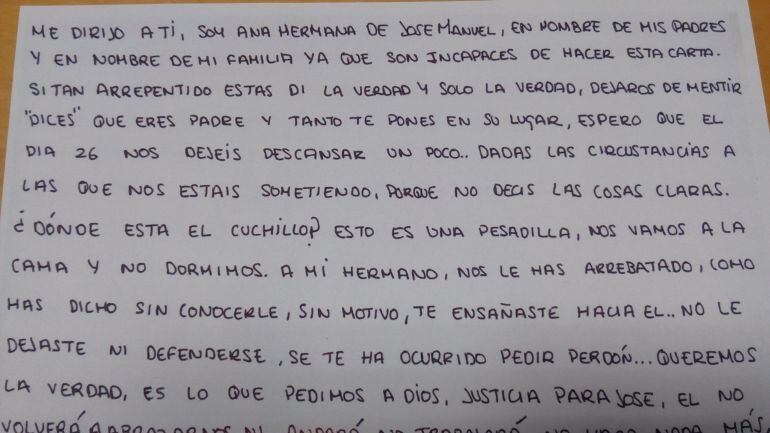 ME DIRIJO A TI, SOY ANA HERMANA DE JOSE MANUEL, EN NOMBRE DE MIS PADRES
Y EN NOMBRE DE MI FAMILIA YA QUE SON INCAPACES DE HACER ESTA CARTA.
SI TAN ARREPENTIDO ESTAS DI LA VERDAD Y SOLO LA VERDAD, DEJAROS DE MENTIR
"DICES" QUE ERES PADRE Y TANTO TE PONES EN SU LUGAR, ESPERO QUE EL
DIA 26 NOS DEJEIS DESCANSAR UN POCO.. DADAS LAS CIRCUSTANCIAS A
LAS QUE NOS ESTAIS SOMETIENDO, PORQUE NO DECIS LAS COSAS CLARAS.
¿DÓNDE ESTA EL CUCHILLO? ESTO ES UNA PESADILLA, NOS VAMOS A LA
CAMA Y NO DORMIMOS. A MI HERMANO, NOS LE HAS ARREBATADO, COMO
HAS DICHO SIN CONOCERLE, SIN MOTIVO, TE ENSAÑASTE HACIA EL.. NO LE
DEJASTE NI DEFENDERSE, SE TE HA OCURRIDO PEDIR PERDÓN... QUEREMOS
LA VERDAD, ES LO QUE PEDIMOS A DIOS, JUSTICIA PARA JOSE, EL NO
VOLVERÁ A NI NO NADA MÁS